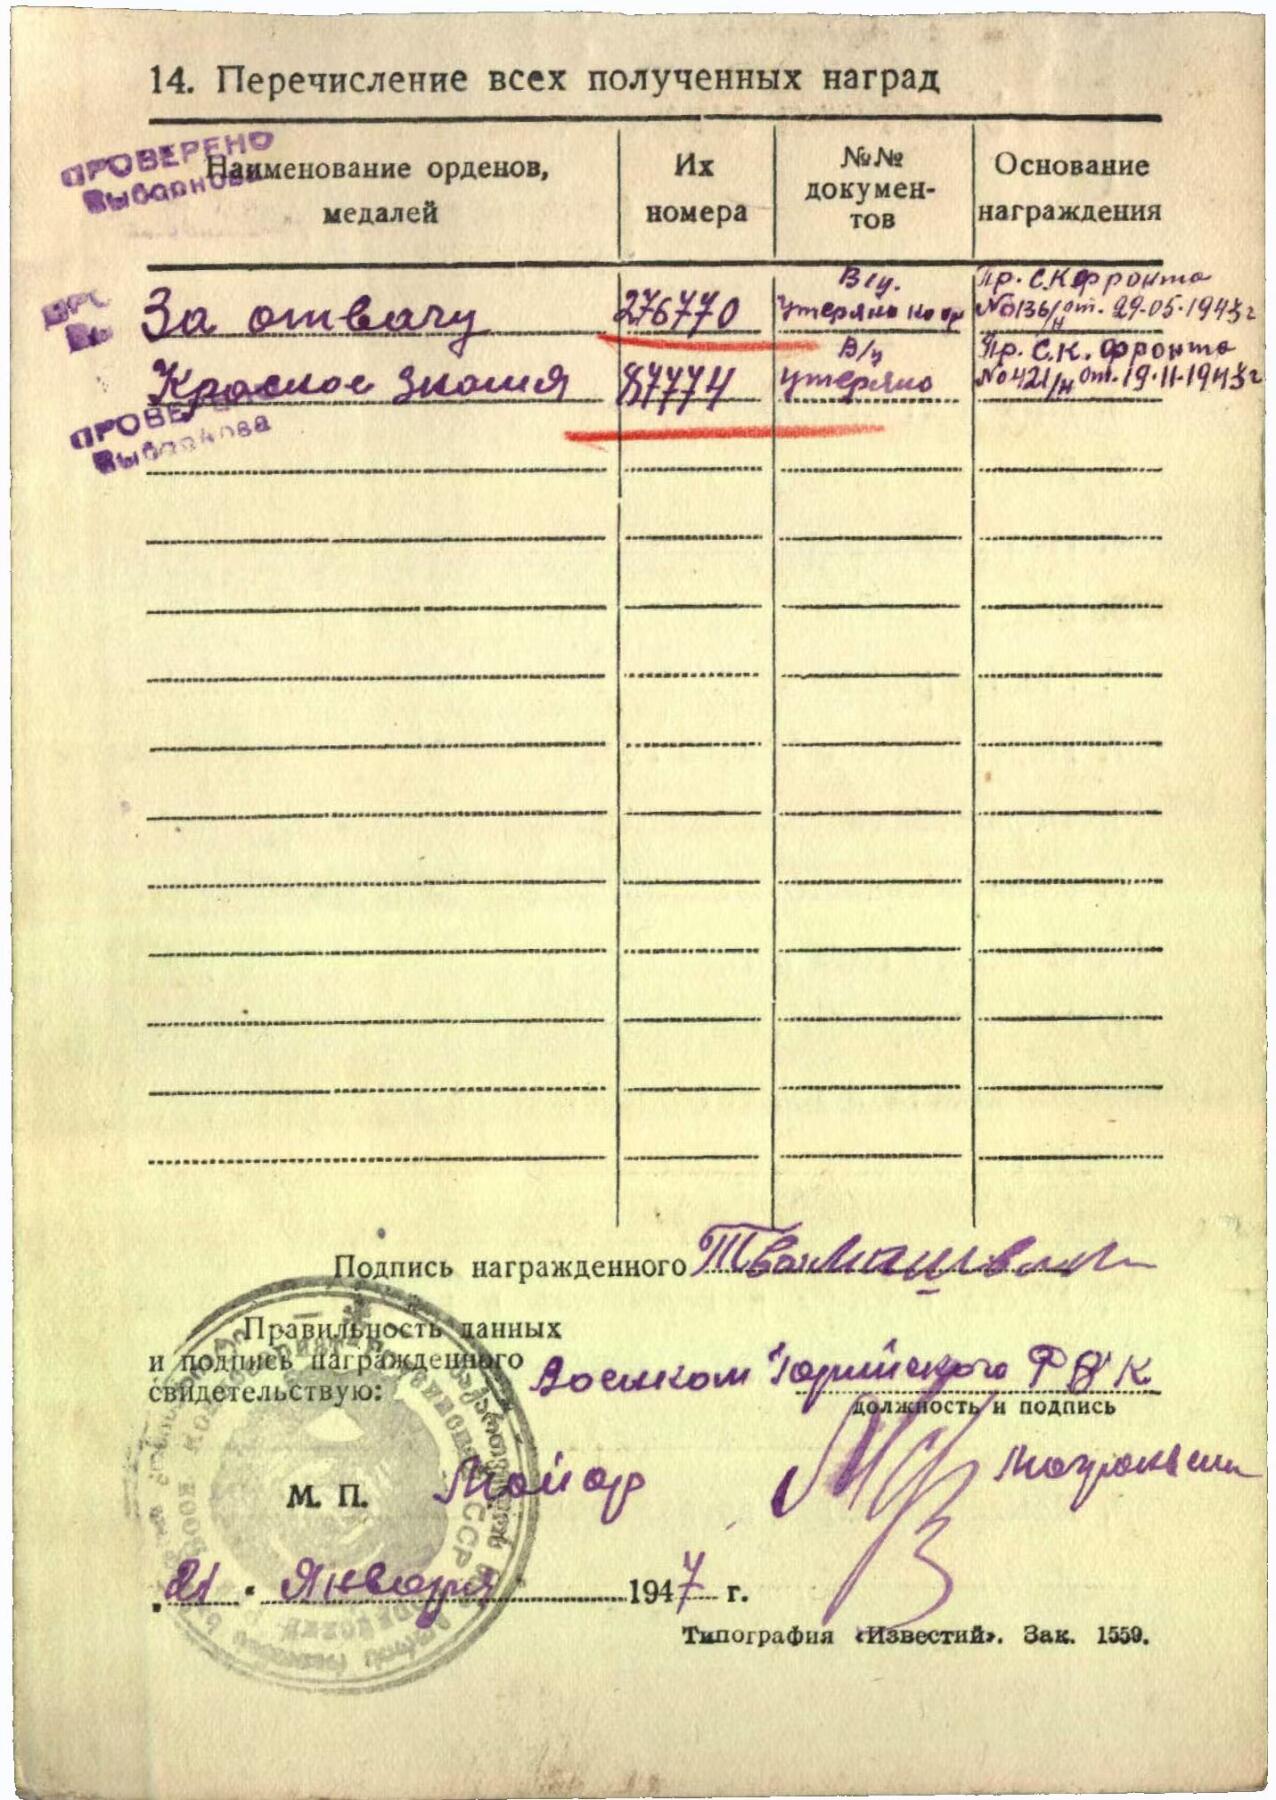 14. Перечисление всех полученных наград
ПРОВЕРЕНО
Наименование орденов, медалей
Их номера
№№ докумен-
тов
Основание награждения
За отвагу 276770 В/у. утеряно Пр. С.К. Фронта
№0136/н от. 29.05.1943г
Красное Знамя 87774 В/у утеряно Пр. С.К. Фронта
№0421/н от. 19.11.1943г
Подпись награжденного
Правильность данных
и подпись награжденного
свидетельствую:
Военком Горийского РВК
должность и подпись
М. П. Майор
21 Января 1947 г.
Типография «Известий». Зак. 1559.